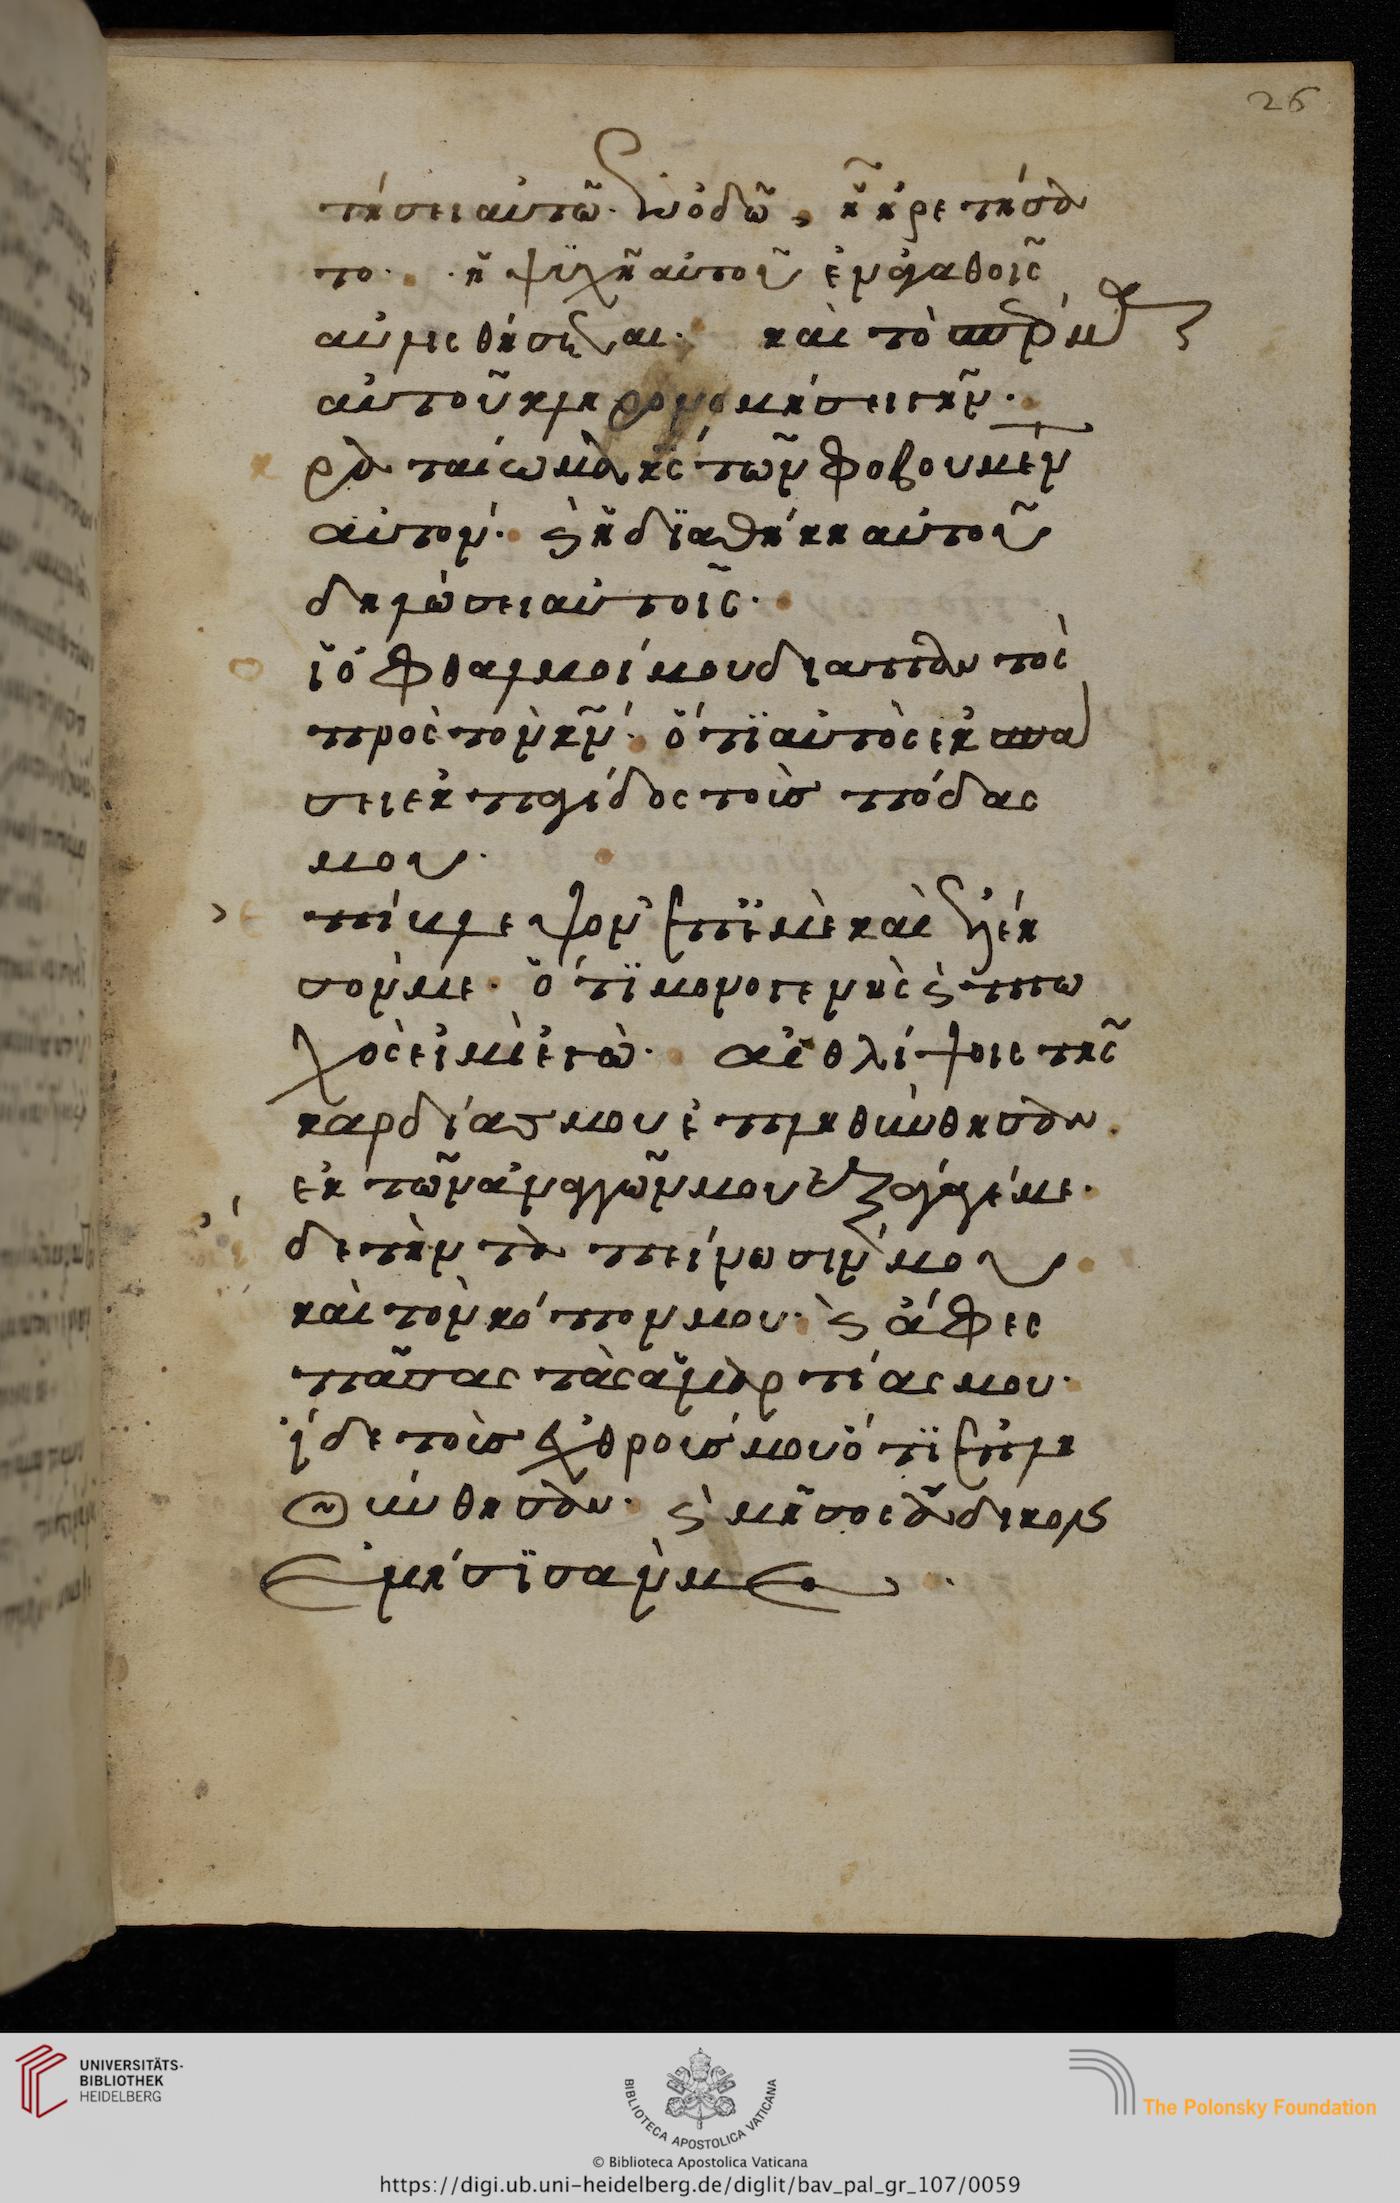 26
τήσει αὐτῶ ἐν ὁδῶ, ἧ ἡρετήσα
το· ἡ ψϊχὴ αὐτοῦ ἐν ἀγαθοῖς
αὐλισθήσεται· καὶ τὸ σπέρμα
αὐτοῦ κληρονομήσει γῆν·
ραταίωμα κς τῶν φοβουμέν
αὐτον· ς ἡ δϊαθήκη αὐτοῦ
δηλώσει αὐτοῖς·
ἱ ὀφθαλμοί μου διαπαντὸς
πρὸς τὸν κν· ὅτϊ αὐτὸς ἐκσπα
σει ἐκ παγίδος τοὺσ πόδας
μου·
πίβλεψον ἐπϊ μὲ καὶ ἐλέη
σον με· ὅτϊ μονογενὴς ς πτω
χὸς εἰμὶ ἐγὼ· αἱ θλίψεις τῆς
καρδίας μου ἐπληθύνθησαν.
ἐκ τῶν ἀναγκῶν μου ἐξάγαγέ με·
δε τὴν ταπείνωσιν μου
καὶ τὸν κόπον μου· ς ἄφες
πάσας τὰς ἁμαρτίας μου·
ἴδε τοὺσ ἐχθρούσ μου ὅτϊ ἐπλη
θύνθησαν· ς μῖσος ἄδικον
ἐμίσϊσαν με
UNIVERSITÄTS-
BIBLIOTHEK
HEIDELBERG
BIBLIOTECA APOSTOLICA VATICANA
The Polonsky Foundation
© Biblioteca Apostolica Vaticana
https://digi.ub.uni-heidelberg.de/diglit/bav_pal_gr_107/0059